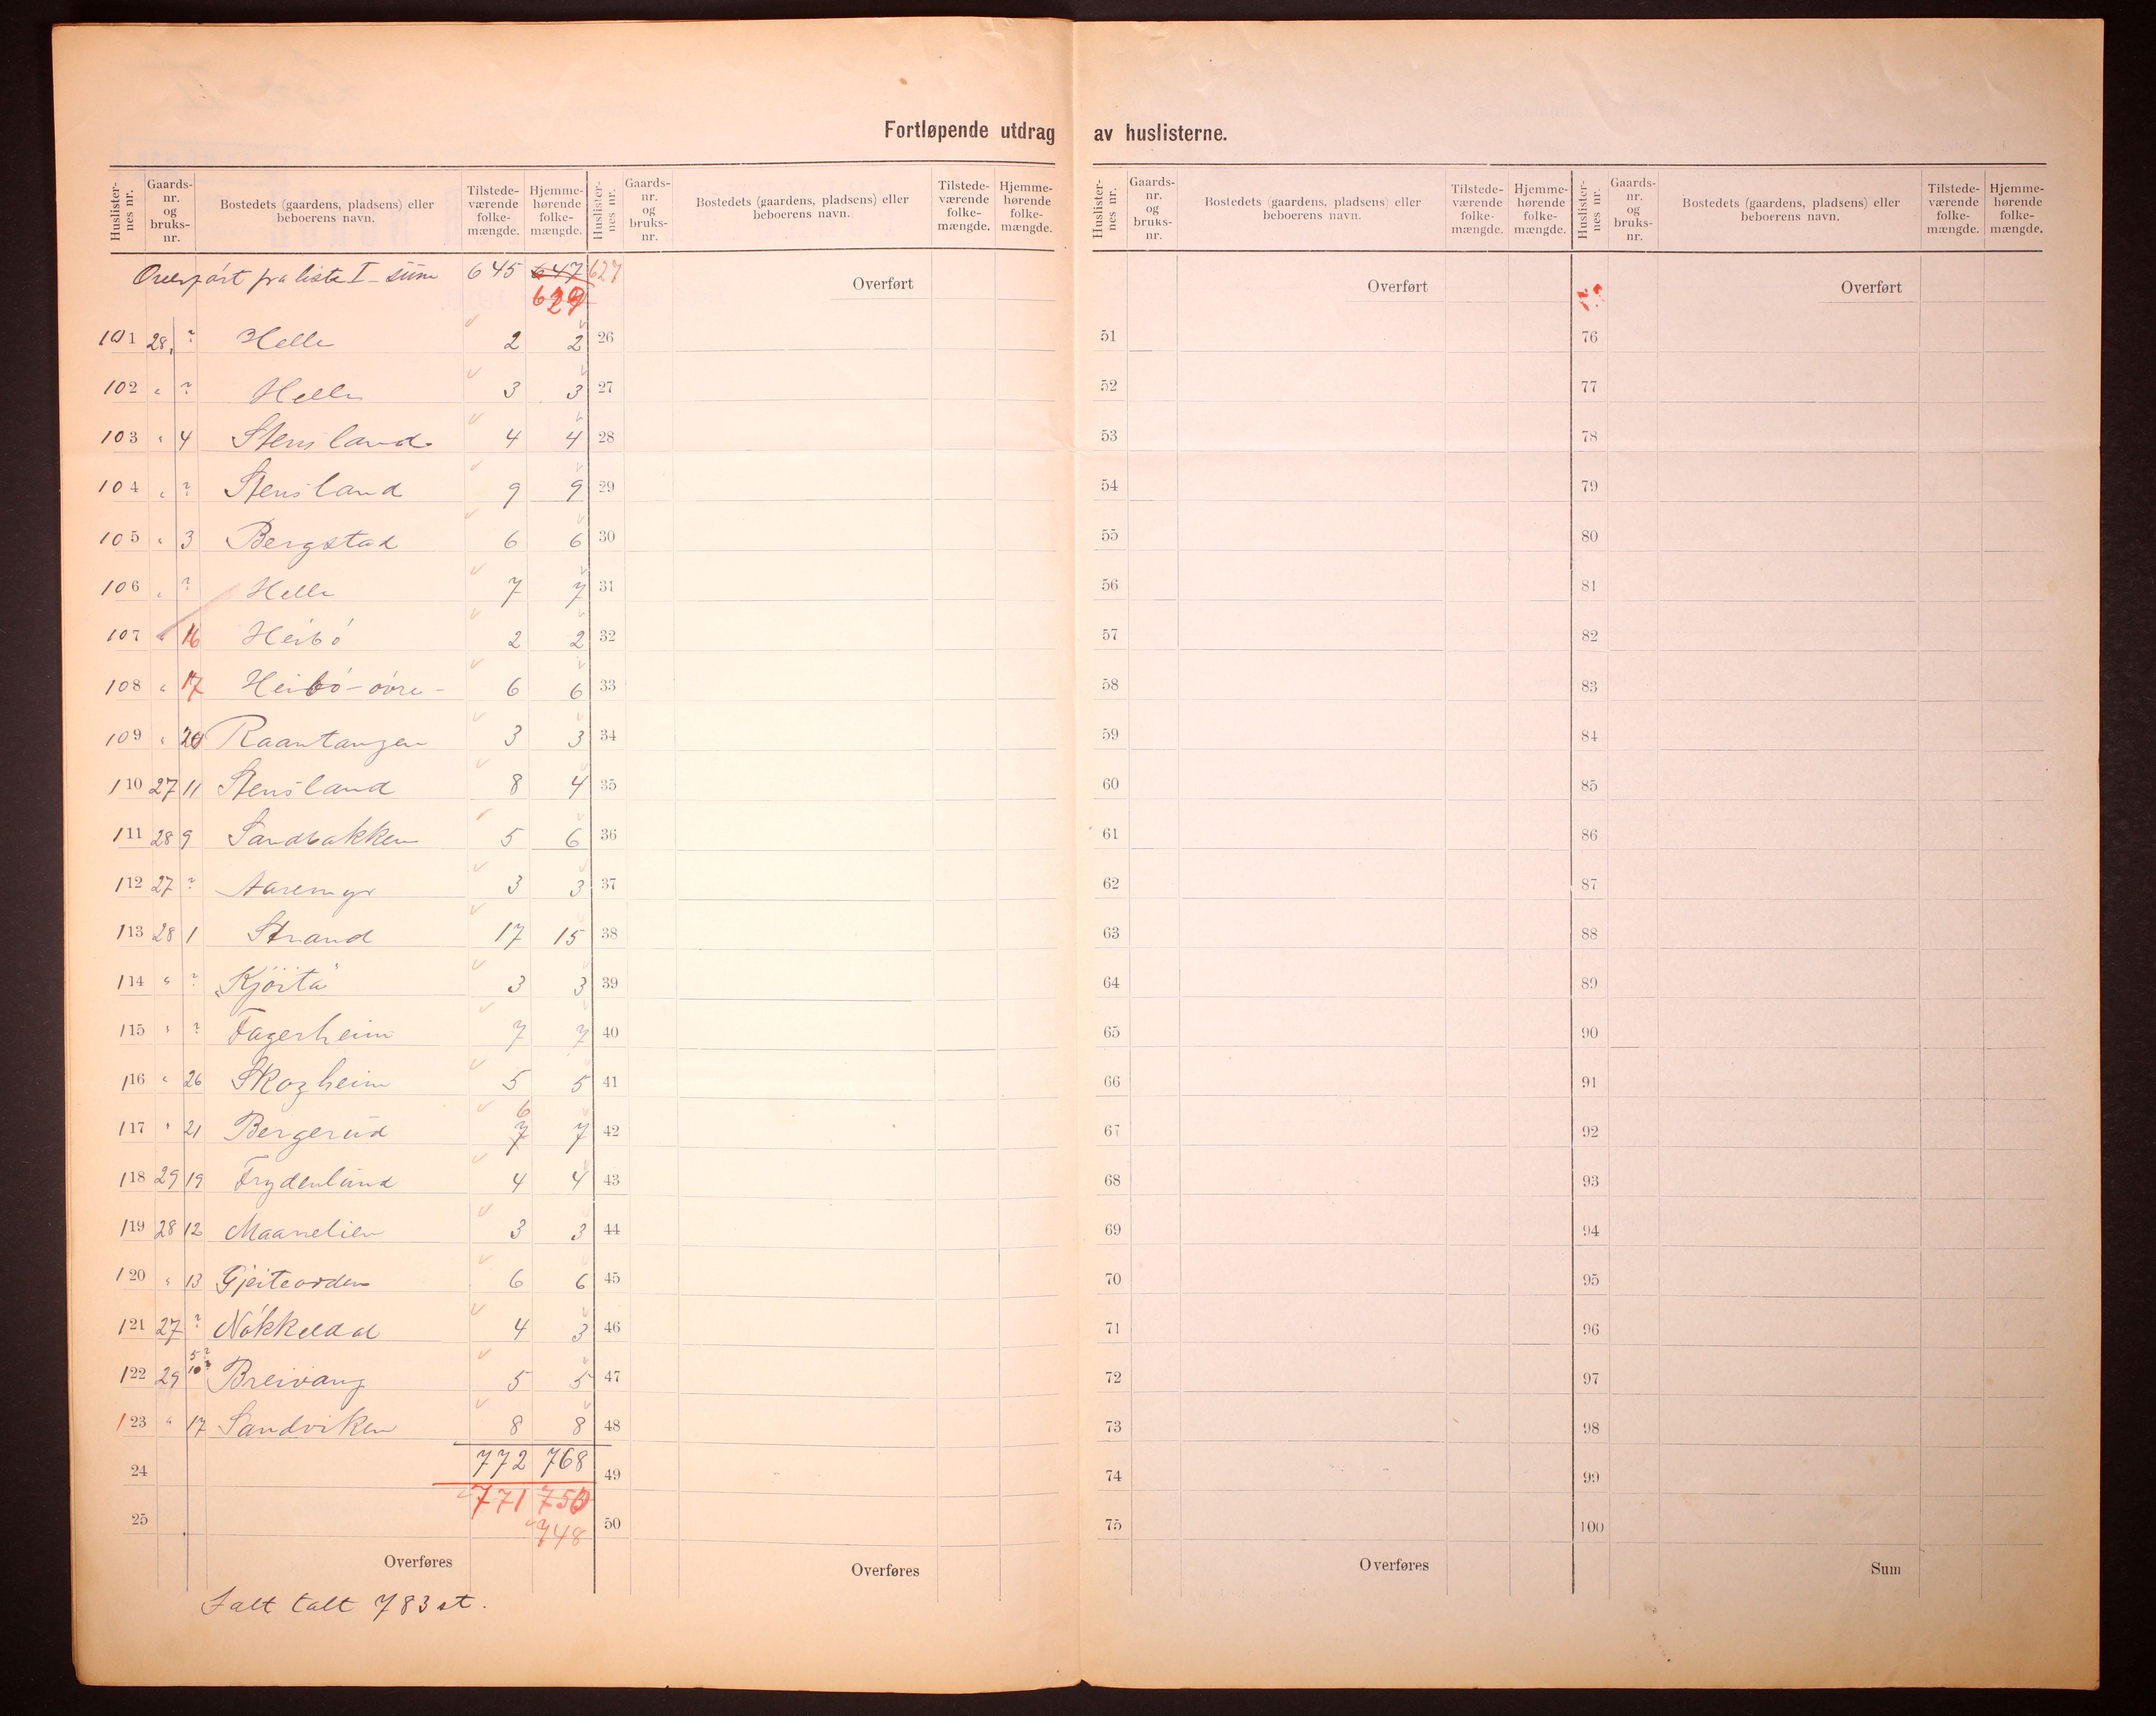 Fortløpende utdrag av huslisterne.
Huslister-nes nr. Gaards-nr. og bruks-nr. Bostedets (gaardens, pladsens) eller beboerens navn. Tilstede-værende folke-mængde. Hjemme-hørende folke-mængde. Huslister-nes nr. Gaards-nr. og bruks-nr. Bostedets (gaardens, pladsens) eller beboerens navn. Tilstede-værende folke-mængde. Hjemme-hørende folke-mængde.
Overført fra liste I - sum 645 647 627 Overført
629
101 28 ? Helle 2 2 26
102 " ? Helle 3 3 27
103 " 4 Stensland 4 4 28
104 " ? Stensland 9 9 29
105 " 3 Bergstad 6 6 30
106 " ? Helle 7 7 31
107 " 16 Heibö 2 2 32
108 " 17 Heibö-övre- 6 6 33
109 " 20 Raantangen 3 3 34
110 27 11 Stensland 8 4 35
111 28 9 Sandbakken 5 6 36
112 27 ? Aaremyr 3 3 37
113 28 1 Strand 17 15 38
114 " ? "Kjöita" 3 3 39
115 " ? Fagerheim 7 7 40
116 " 26 Skogheim 5 5 41
6
117 " 21 Bergerud 7 7 42
118 29 19 Frydenlund 4 4 43
119 28 12 Maanelien 3 3 44
120 " 13 Gjeiteorden 6 6 45
121 27 ? Nökkeldal 4 3 46
5 ?
122 29 10 ? Breivang 5 5 47
123 " 17 Sandviken 8 8 48
24 772 768 49
771 750
25 748 50
Overføres Overføres
Ialt talt 783 st.
Huslister-nes nr. Gaards-nr. og bruks-nr. Bostedets (gaardens, pladsens) eller beboerens navn. Tilstede-værende folke-mængde. Hjemme-hørende folke-mængde. Huslister-nes nr. Gaards-nr. og bruks-nr. Bostedets (gaardens, pladsens) eller beboerens navn. Tilstede-værende folke-mængde. Hjemme-hørende folke-mængde.
Overført Overført
51 76
52 77
53 78
54 79
55 80
56 81
57 82
58 83
59 84
60 85
61 86
62 87
63 88
64 89
65 90
66 91
67 92
68 93
69 94
70 95
71 96
72 97
73 98
74 99
75 100
Overføres Sum